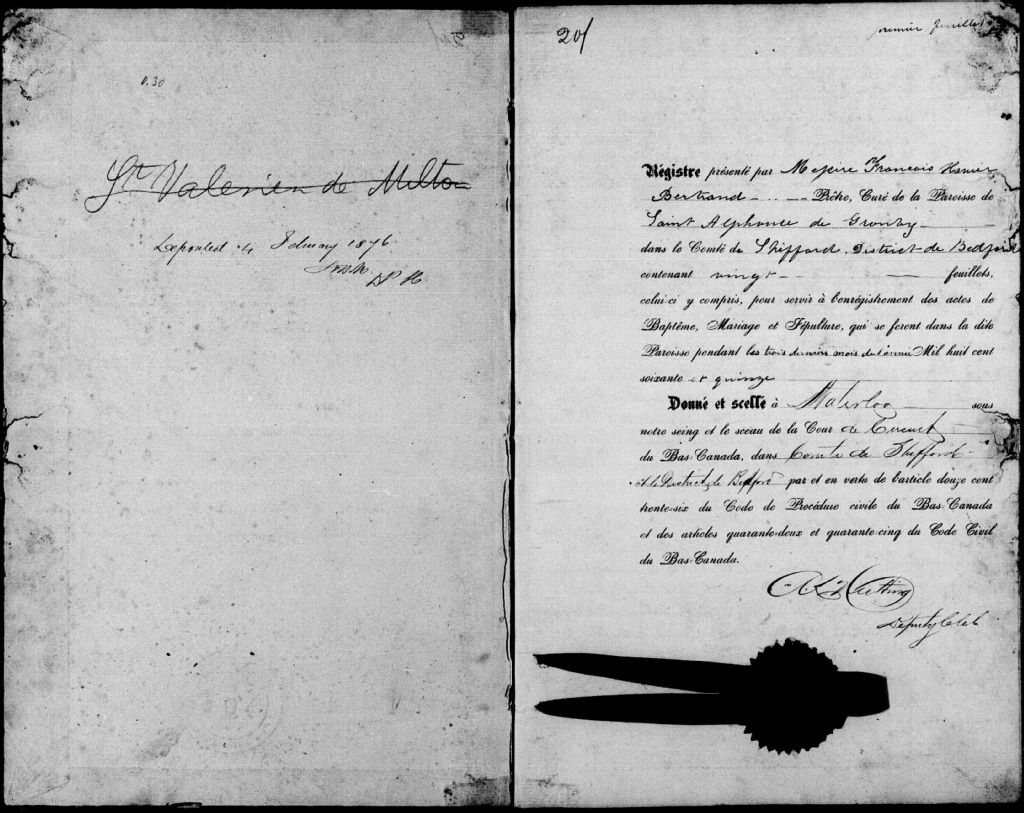 0.30
St Valerien de Milton
Deposited 4 February 1876
D P H
20/
premier feuillet
Régistre présenté par Messire Francois Xavier
Bertrand Prêtre, Curé de la Paroisse de
Saint Alphonse de Granby
dans le Comté de Shefford, District de Bedford
contenant vingt feuillets,
celui-ci y compris, pour servir à l'enrégistrement des actes de
Baptême, Mariage et Sépulture, qui se feront dans la dite
Paroisse pendant les trois derniers mois de l'année Mil huit cent
soixante et quinze
Donné et scellé à Waterloo sous
notre seing et le sceau de la Cour de Circuit
du Bas-Canada, dans Comté de Shefford
et le District de Bedford par et en vertu de l'article douze cent
trente-six du Code de Procédure civile du Bas-Canada
et des articles quarante-deux et quarante-cinq du Code Civil
du Bas-Canada.
Deputy Clerk